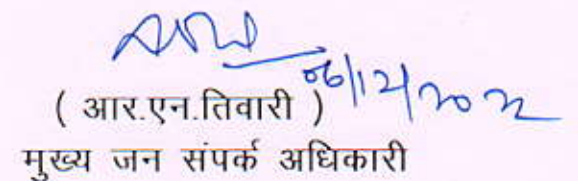 06/12/2022
( आर.एन.तिवारी )
मुख्य जन संपर्क अधिकारी